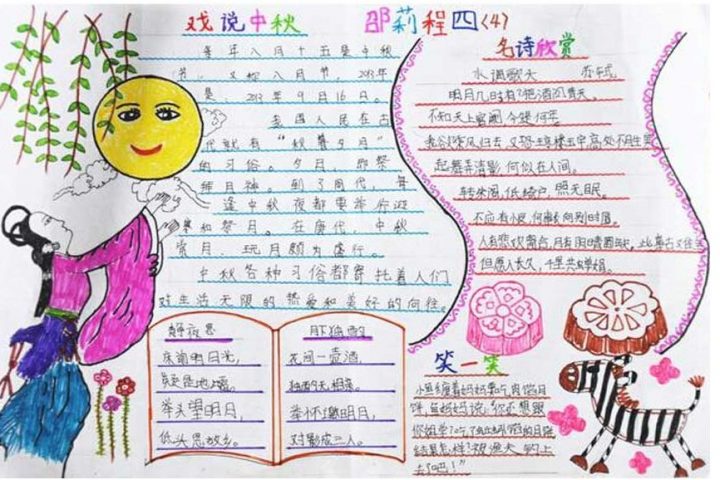 戏说中秋
邵莉程四(4)
每年八月十五是中秋
节，又称八月节，2013年
是2013年9月16日。
我国人民在古
代就有"秋暮夕月"
的习俗。夕月，即祭
拜月神。到了周代，每
逢中秋夜都要举行迎
寒和祭月。在唐代，中秋
赏月、玩月颇为盛行。
中秋各种习俗都寄托着人们
对生活无限的热爱和美好的向往。
名诗欣赏
水调歌头 苏轼
明月几时有？把酒问青天。
不知天上宫阙，今夕是何年。
我欲乘风归去，又恐琼楼玉宇，高处不胜寒
起舞弄清影，何似在人间。
转朱阁，低绮户，照无眠。
不应有恨，何事长向别时圆。
人有悲欢离合，月有阴晴圆缺，此事古难全
但愿人长久，千里共婵娟。
静夜思
床前明月光，
疑是地上霜。
举头望明月，
低头思故乡。
月下独酌
花间一壶酒，
独酌无相亲。
举杯邀明月，
对影成三人。
笑一笑